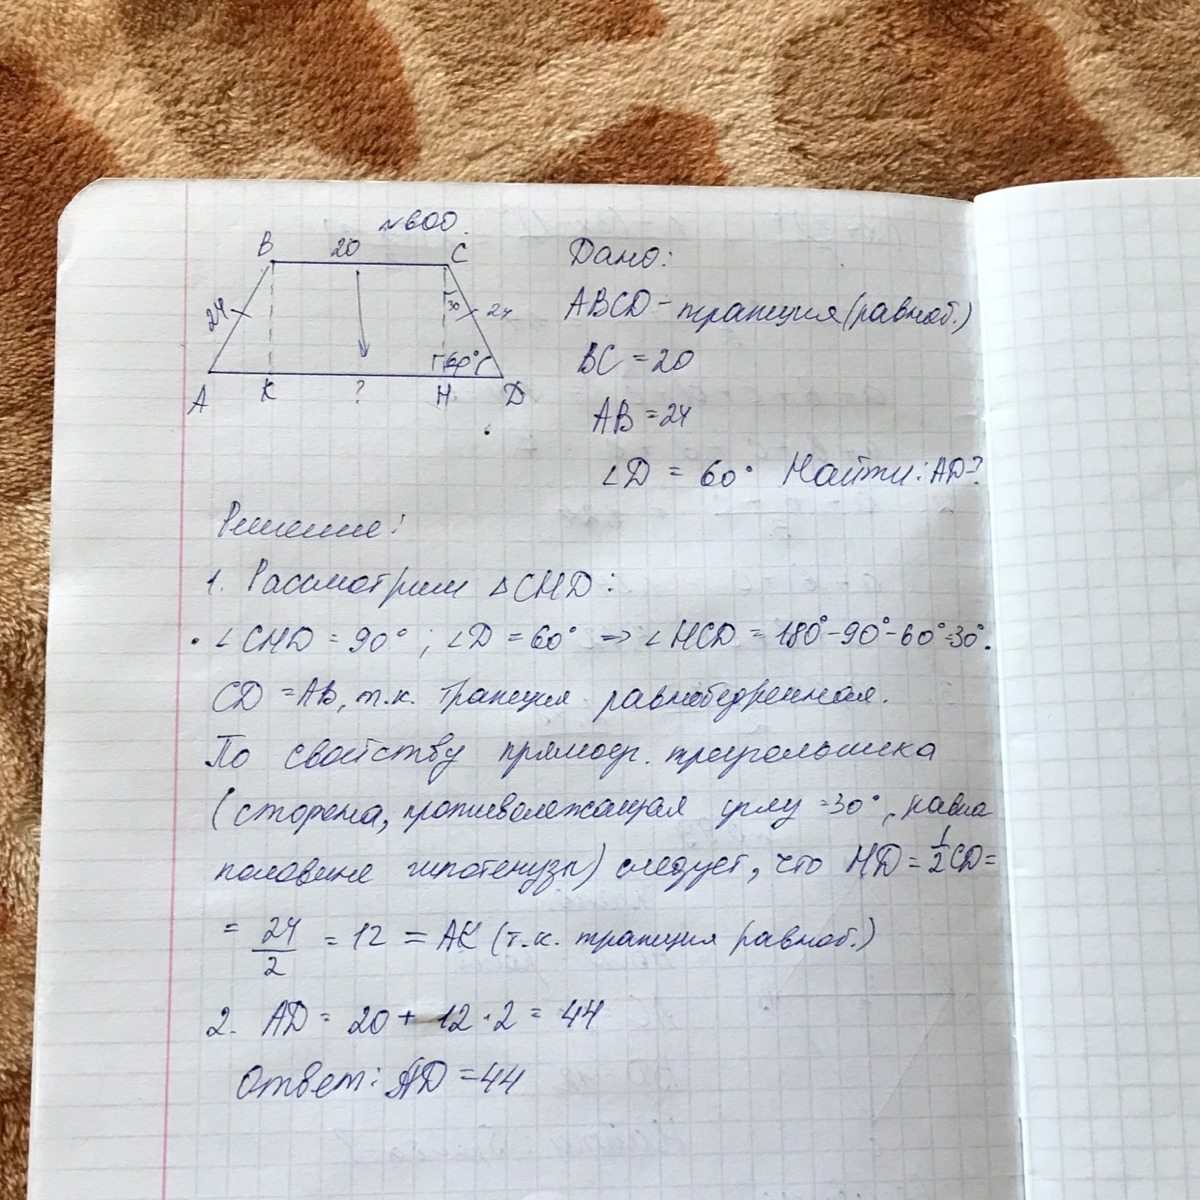 №600.
B 20 C
24 30 24
60°
A K ? H D
Дано:
ABCD - трапеция (равноб.)
BC = 20
AB = 24
∠D = 60° Найти: AD?
Решение:
1. Рассмотрим △CHD:
∠CHD = 90° ; ∠D = 60° => ∠HCD = 180°-90°-60°=30°.
CD = AB, т.к. трапеция равнобедренная.
По свойству прямоуг. треугольника
(сторона, противолежащая углу =30°, равна
половине гипотенузы) следует, что HD = 1/2 CD =
= 24/2 = 12 = AK (т.к. трапеция равноб.)
2. AD = 20 + 12 · 2 = 44
Ответ: AD = 44